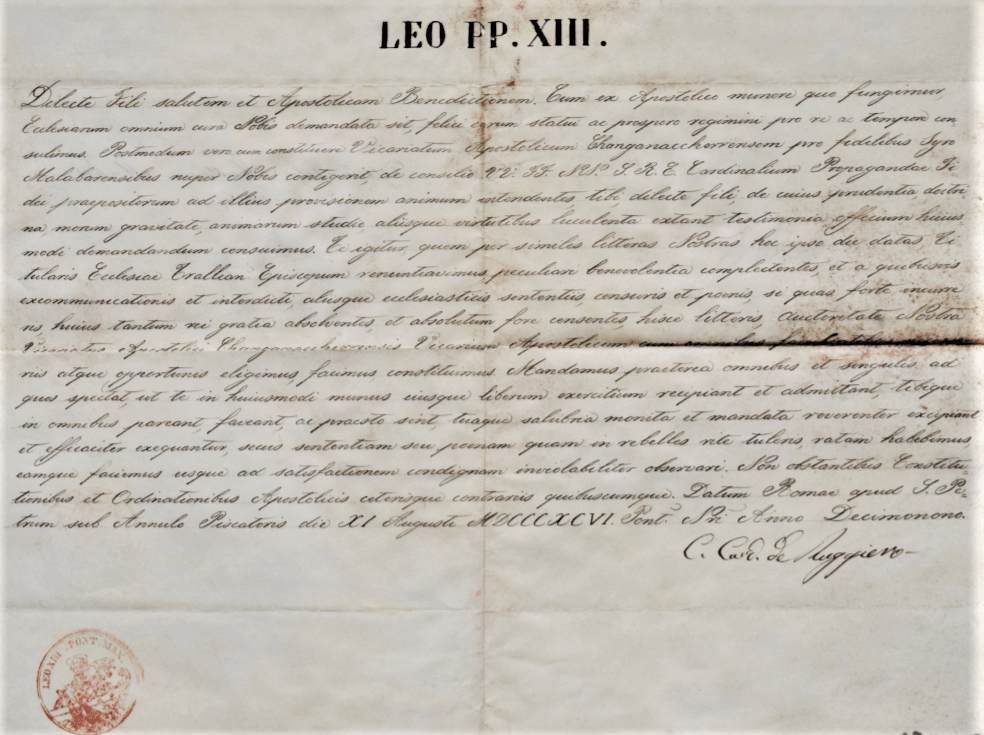 LEO PP. XIII.
Dilecte Fili salutem et Apostolicam Benedictionem. Cum ex Apostolico munere quo fungimur,
Ecclesiarum omnium cura Nobis demandata sit, felici earum statui ac prospero regimini pro re ac tempore con
sulimus. Postmodum vero cum constituere Vicariatum Apostolicum Changanacherrensem pro fidelibus Syro
Malabarensibus nuper Nobis contigerit, de consilio VV. FF. NN. S. R. E. Cardinalium Propagandae Fi
dei praepositorum ad illius provisionem animum intendentes, tibi, dilecte fili, de cuius prudentia, doctri
na, morum gravitate, animarum studio, aliisque virtutibus luculenta extant testimonia officium huius
modi demandandum censuimus. Te igitur, quem per similes litteras Nostras hoc ipso die datas, Ti
tularis Ecclesiae Trallian Episcopum renuntiavimus, peculiari benevolentia complectentes, et a quibusvis
excommunicationis et interdicti, aliisque ecclesiasticis sententiis, censuris et poenis, si quas forte incurre
ris, huius tantum rei gratia absolventes, et absolutum fore censentes, hisce litteris, Auctoritate Nostra
Vicariatus Apostolici Changanacherrensis Vicarium Apostolicum cum omnibus facultatibus
riis atque opportunis eligimus, facimus, constituimus. Mandamus praeterea omnibus et singulis, ad
quos spectat, ut te in huiusmodi munus eiusque liberum exercitium recipiant et admittant, tibique
in omnibus pareant, faveant, ac praesto sint, tuaque salubria monita et mandata reverenter excipiant
et efficaciter exequantur, secus sententiam seu poenam quam in rebelles rite tuleris, ratam habebimus,
eamque faciemus usque ad satisfactionem condignam inviolabiliter observari. Non obstantibus Constitu
tionibus et Ordinationibus Apostolicis ceterisque contrariis quibuscumque. Datum Romae apud S. Pe
trum sub Annulo Piscatoris die XI Augusti MDCCCXCVI. Pont. Nri Anno Decimonono.
C. Card. de Ruggiero
LEO XIII · PONT · MAX